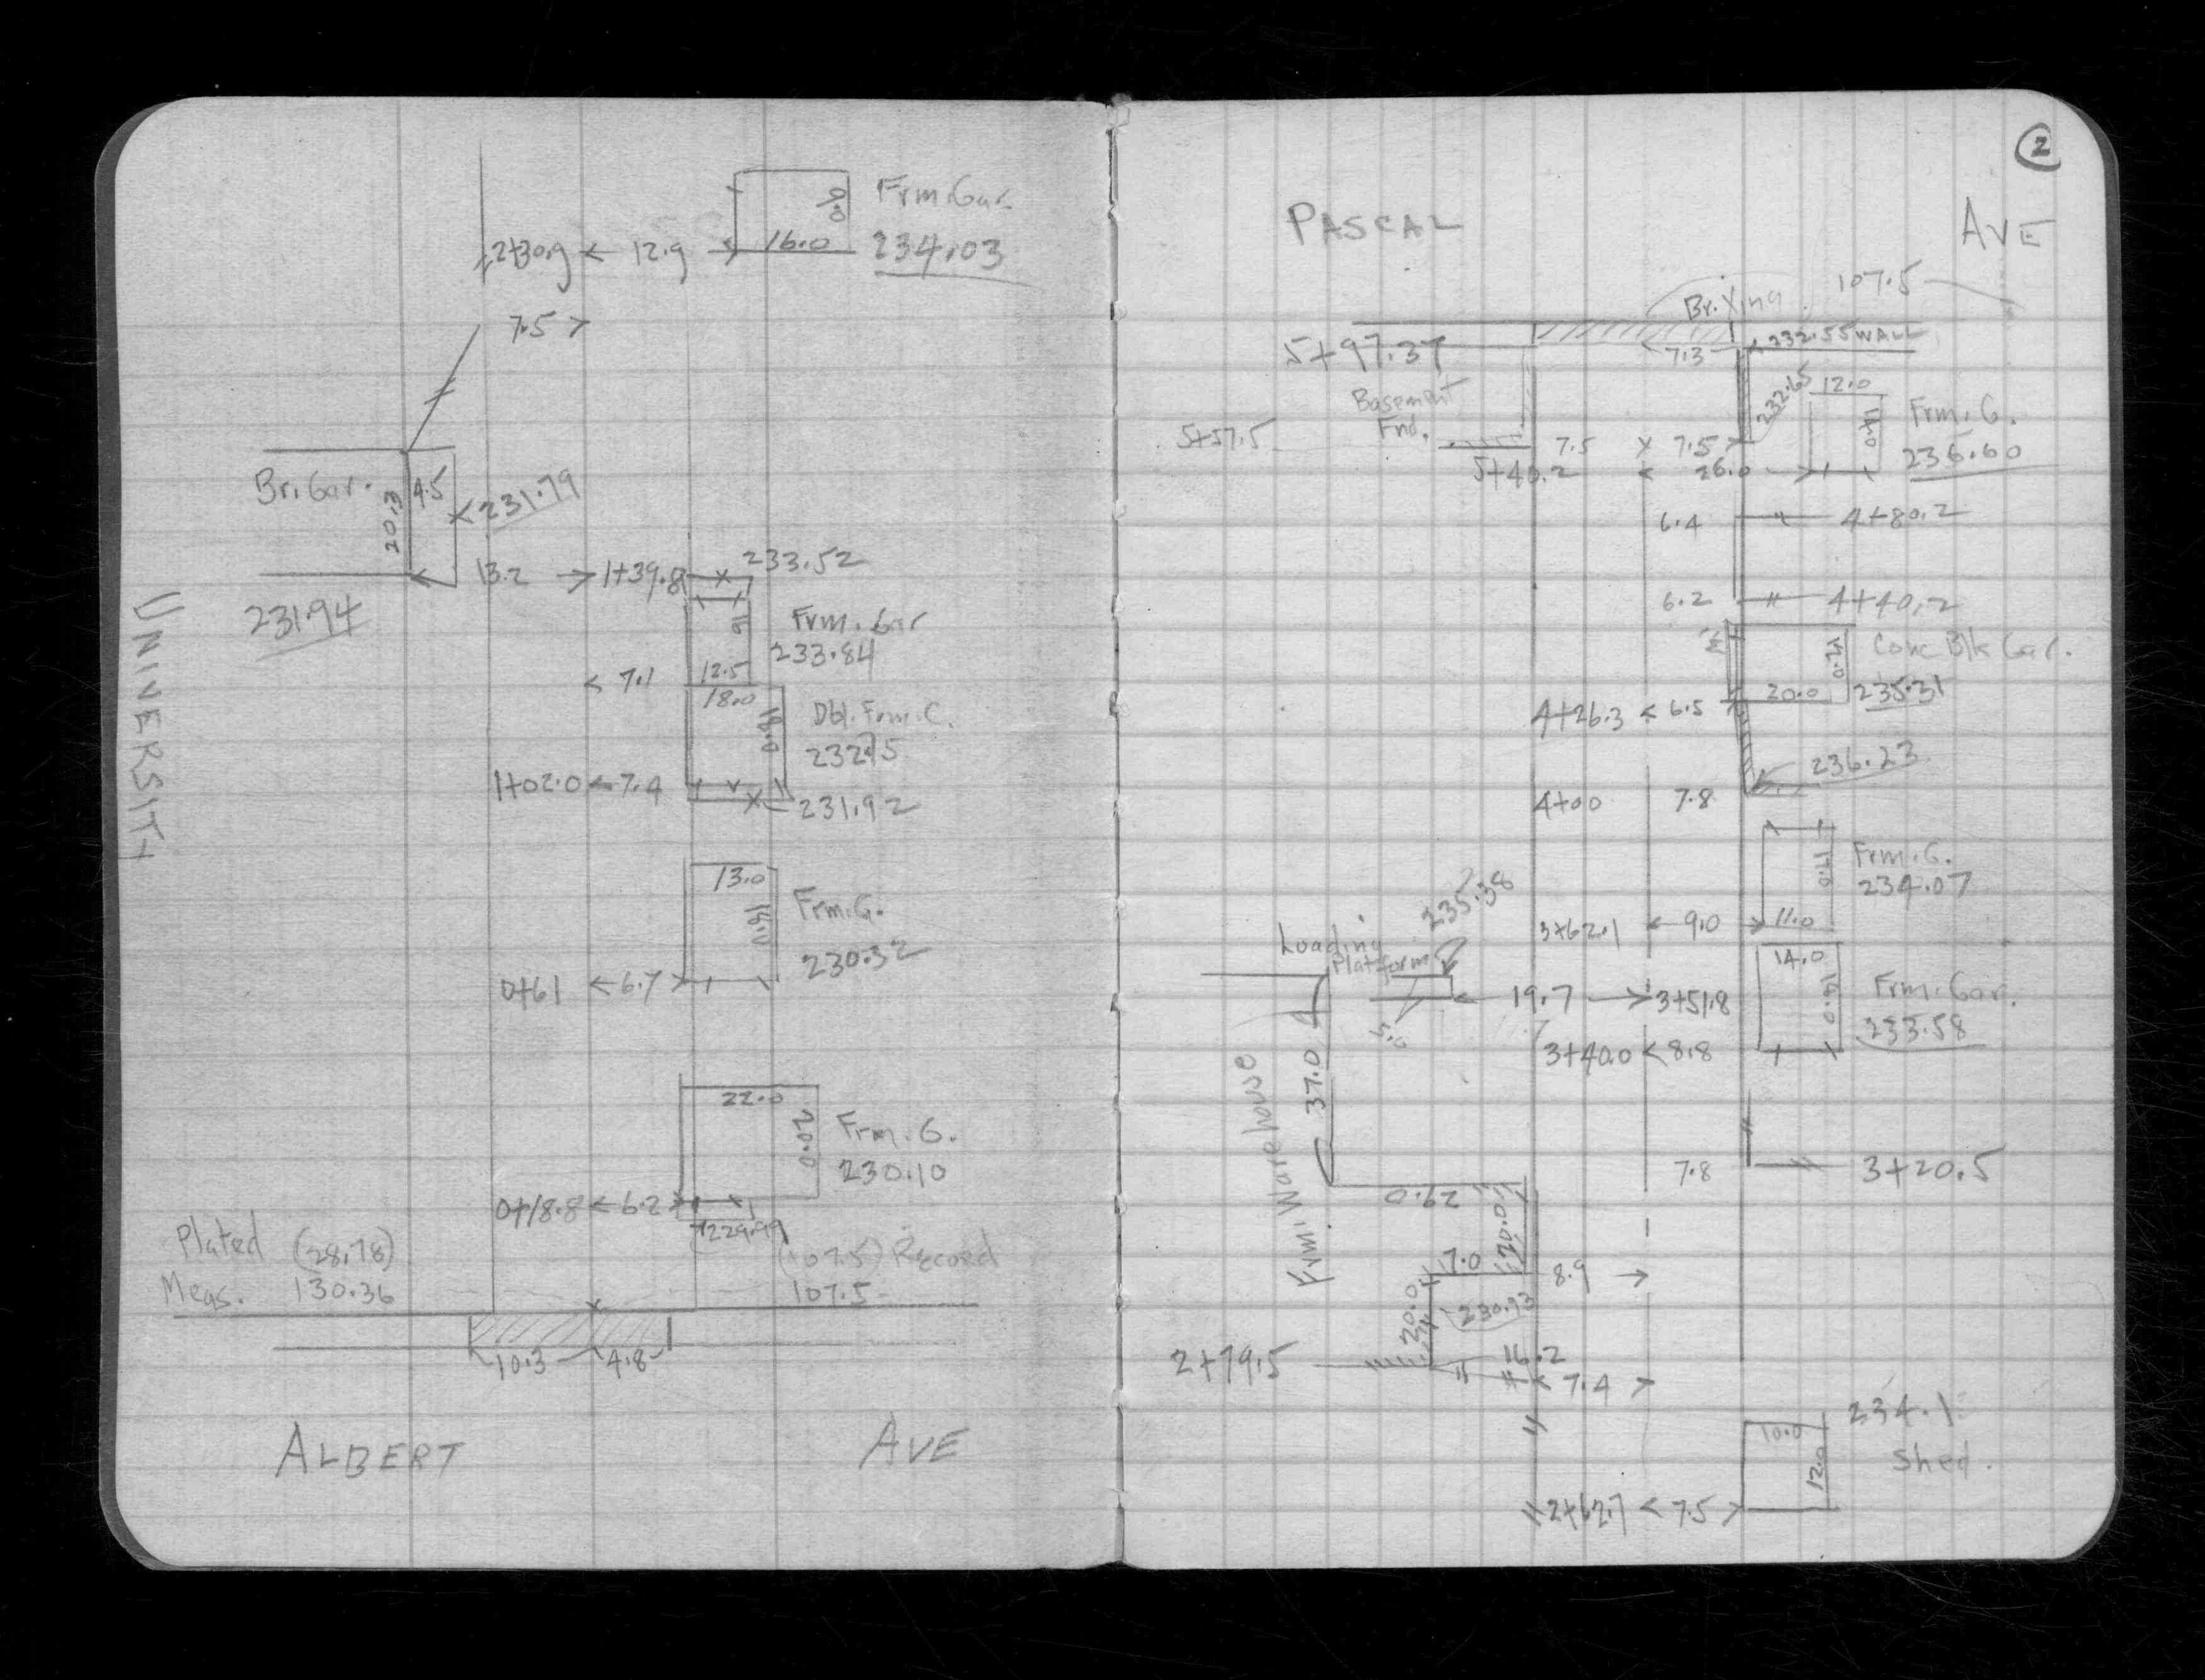 Frm. Gar.
16.0 234.03
2+30.9 < 12.9
7.5 >
Br. Gar.
20.3
4.5
231.79
13.2 1+39.8 233.52
231.94
UNIVERSITY
16
Frm. Gar
233.84
< 7.1 12.5
18.0
18.0
Dbl. Frm. G.
232.75
1+02.0 < 7.4
231.92
13.0
16.0
Frm. G.
230.32
0+61 < 6.7 >
22.0
20.0
Frm. G.
230.10
0+18.8 < 6.2
229.99
Plated (28.78) (107.5) Record
Meas. 130.36 107.5
10.3 4.8
ALBERT AVE
2
PASCAL AVE
Br. Xing 107.5
5+97.37 < 7.3 232.55 WALL
232.65
12.0
14.0
Frm. G.
236.60
Basement
Fnd.
5+57.5 7.5 x 7.5 >
5+40.2 < 26.0 >
6.4 4+80.2
6.2 4+40.2
14.0
Conc Blk Gar.
20.0 235.31
4+26.3 < 6.5
236.23
4+00 7.8
17.0
Frm. G.
234.07
235.38
3+62.1 < 9.0 > 11.0
Loading
Platform
14.0
18.0
Frm. Gar.
233.58
5.0
< 19.7 > 3+51.8
3+40.0 < 8.8
Frm. Warehouse
37.0
7.8 3+20.5
29.0
20.0
17.0 8.9 >
20.0
230.93
2+79.5 16.2
< 7.4 >
10.0
12.0
234.1
Shed.
2+62.7 < 7.5 >